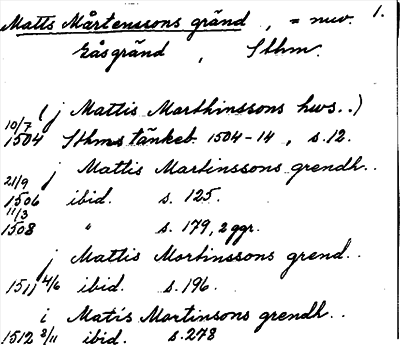 Matts Mårtenssons gränd, = nuv. 1.
Gåsgränd, Sthm.
(j Mattis Marthinssons hws..)
10/7
1504 Sthms tänkeb. 1504-14, s. 12.
j Mattis Martinssons grendh..
21/9
1506 ibid. s. 125.
11/3
1508 " s. 179, 2 ggr.
j Mattis Mortinssons grend..
1511 4/6 ibid. s. 196.
i Matis Martinsons grendh..
1512 3/11 ibid. s. 278